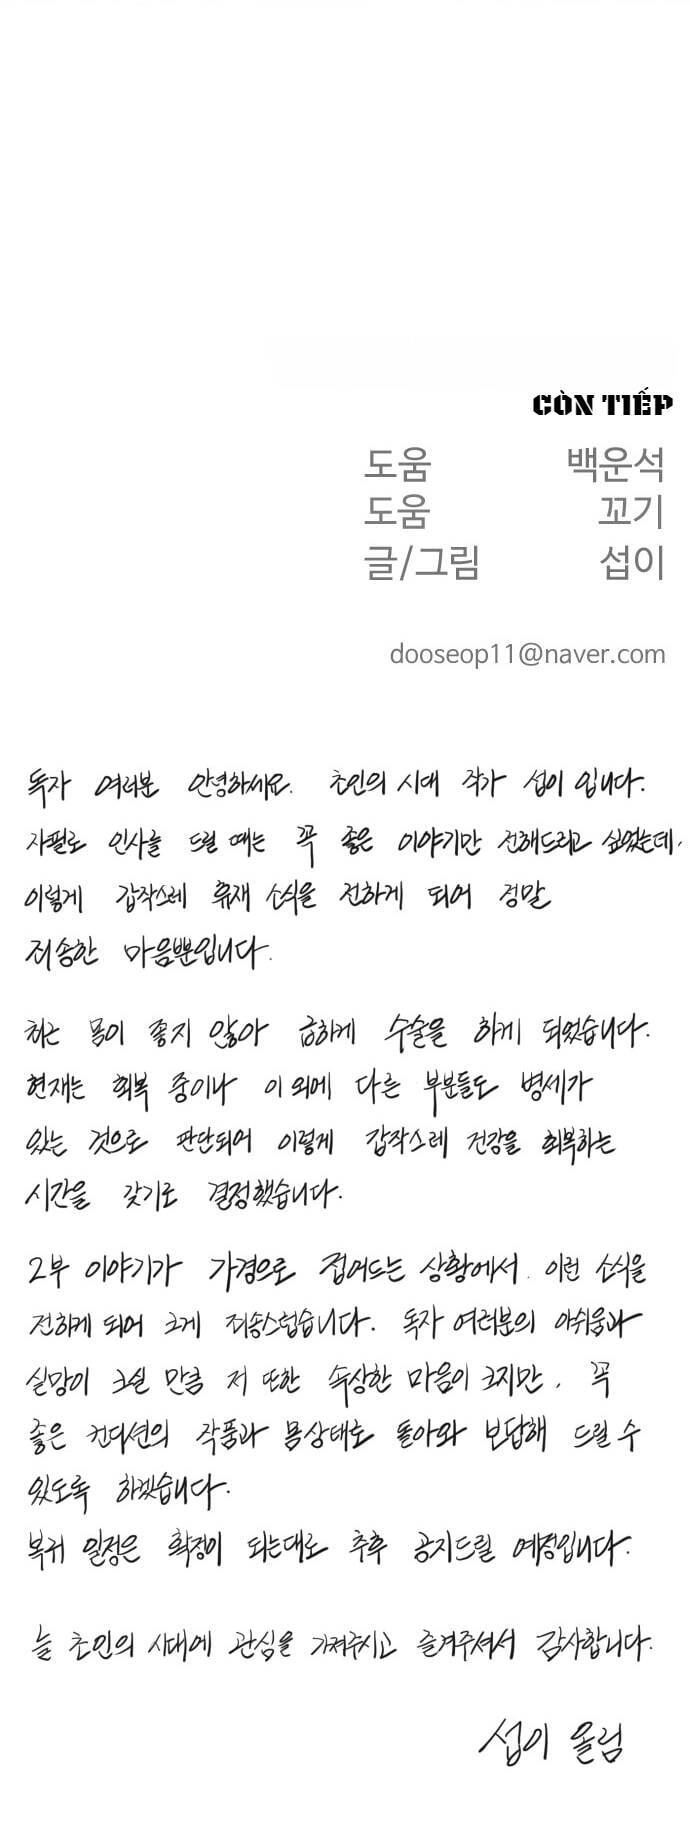 CÒN TIẾP
도움 백운석
도움 꼬기
글/그림 섭이
dooseop11@naver.com
독자 여러분 안녕하세요. 초인의 시대 작가 섭이 입니다.
자필로 인사를 드릴 때는 꼭 좋은 이야기만 전해드리고 싶었는데,
이렇게 갑작스레 휴재 소식을 전하게 되어 정말
죄송한 마음뿐입니다.
최근 몸이 좋지 않아 급하게 수술을 하게 되었습니다.
현재는 회복 중이나 이 외에 다른 부분들도 병세가
있는 것으로 판단되어 이렇게 갑작스레 건강을 회복하는
시간을 갖기로 결정했습니다.
2부 이야기가 가경으로 접어드는 상황에서 이런 소식을
전하게 되어 크게 죄송스럽습니다. 독자 여러분의 아쉬움과
실망이 크실 만큼 저 또한 속상한 마음이 크지만, 꼭
좋은 컨디션의 작품과 몸상태로 돌아와 보답해 드릴 수
있도록 하겠습니다.
복귀 일정은 확정이 되는대로 추후 공지드릴 예정입니다.
늘 초인의 시대에 관심을 가져주시고 즐겨주셔서 감사합니다.
섭이 올림